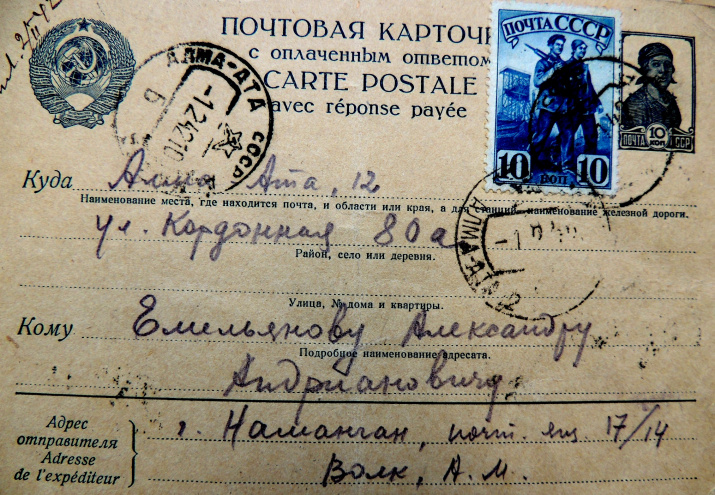 ПОЧТОВАЯ КАРТОЧК
с оплаченным ответом
CARTE POSTALE
avec réponse payée
ПОЧТА СССР
10 КОП 10
10 КОП
ПОЧТА СССР
АЛМА-АТА СССР
АЛМА-АТА 12
Куда Алма Ата, 12
Наименование места, где находится почта, и области или края, а для станций, наименование железной дороги.
ул. Кордонная 80а
Район, село или деревня.
Улица, № дома и квартиры.
Кому Емельянову Александру
Подробное наименование адресата.
Андриановичу
Адрес
отправителя
Adresse
de l'expéditeur
г. Наманган, почт. ящ. 17/14
Волк, А. М.